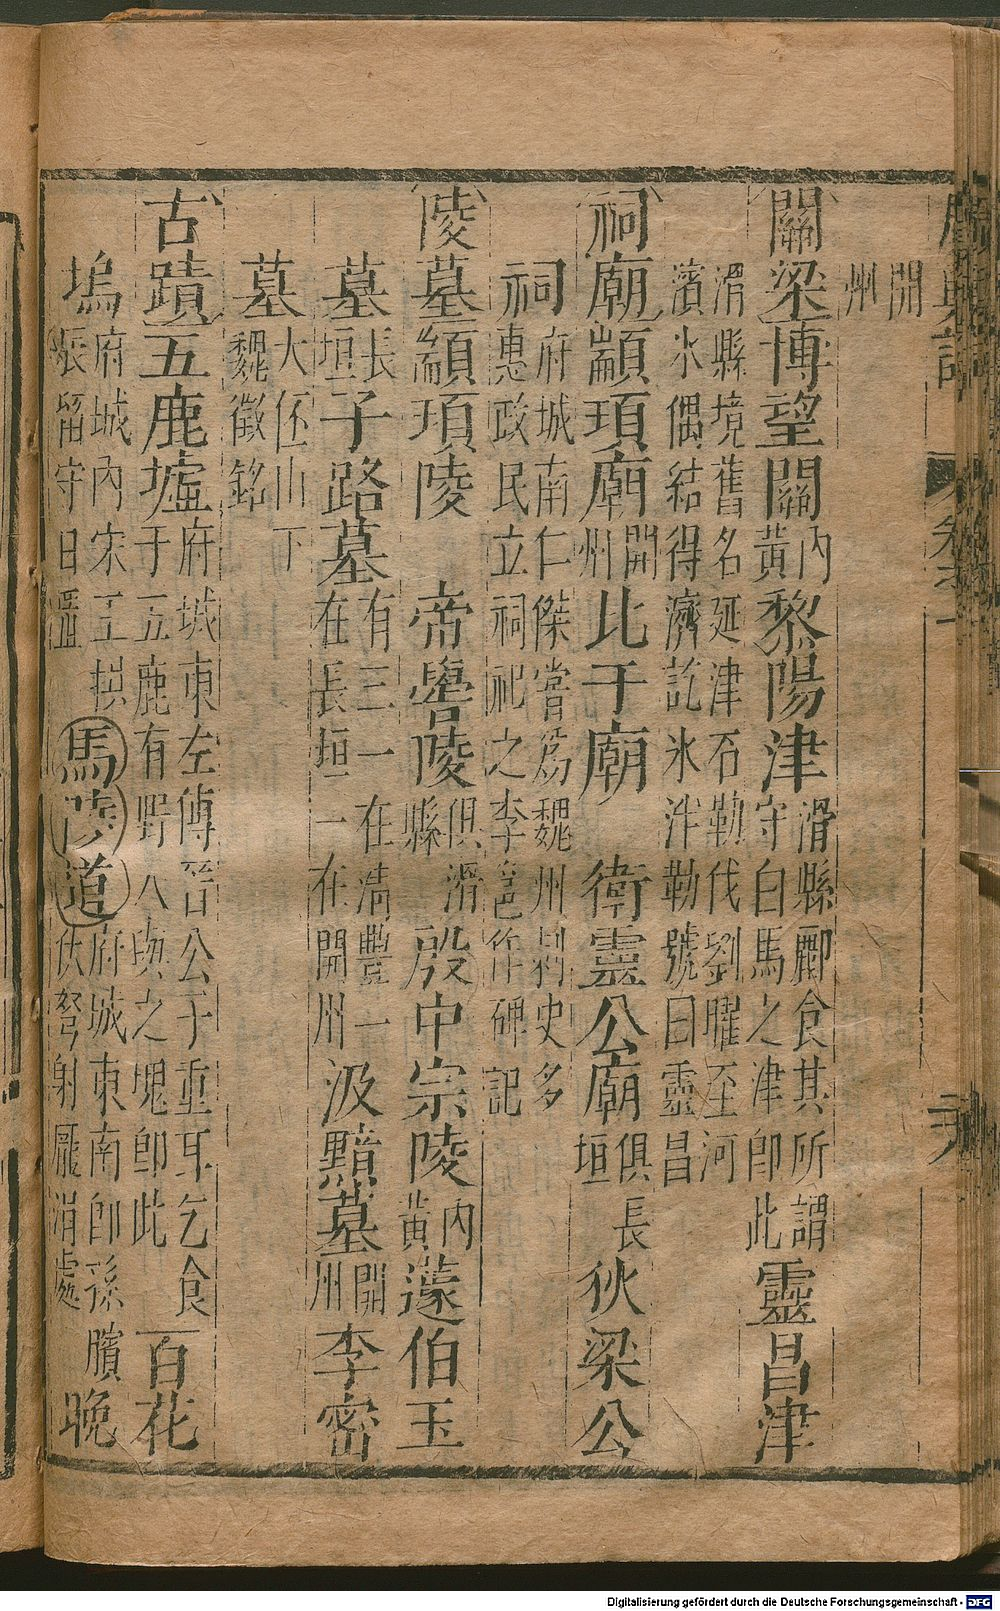 開
州
關梁博望關內黃黎陽津滑縣酈食其所謂守白馬之津即此靈昌津
滑縣境舊名延津石勒伐劉曜至河
濱氷偶結得濟訖氷泮勒號曰靈昌
祠廟顓頊廟開州比干廟 衛靈公廟俱長垣狄梁公
祠府城南仁傑嘗為魏州刺史多
惠政民立祠祀之李邕作碑記
陵墓顓頊陵 帝嚳陵俱滑縣殷中宗陵內黃蘧伯玉
墓長垣子路墓有三一在清豐一在長垣一在開州汲黯墓開州李密
墓大伾山下魏徵銘
古蹟五鹿墟府城東左傳晉公子重耳乞食于五鹿有野人與之塊即此百花
塢府城內宋王拱留守日馬陵道府城東南即孫臏伏弩射龐涓處晚
Digitalisierung gefördert durch die Deutsche Forschungsgemeinschaft - DFG